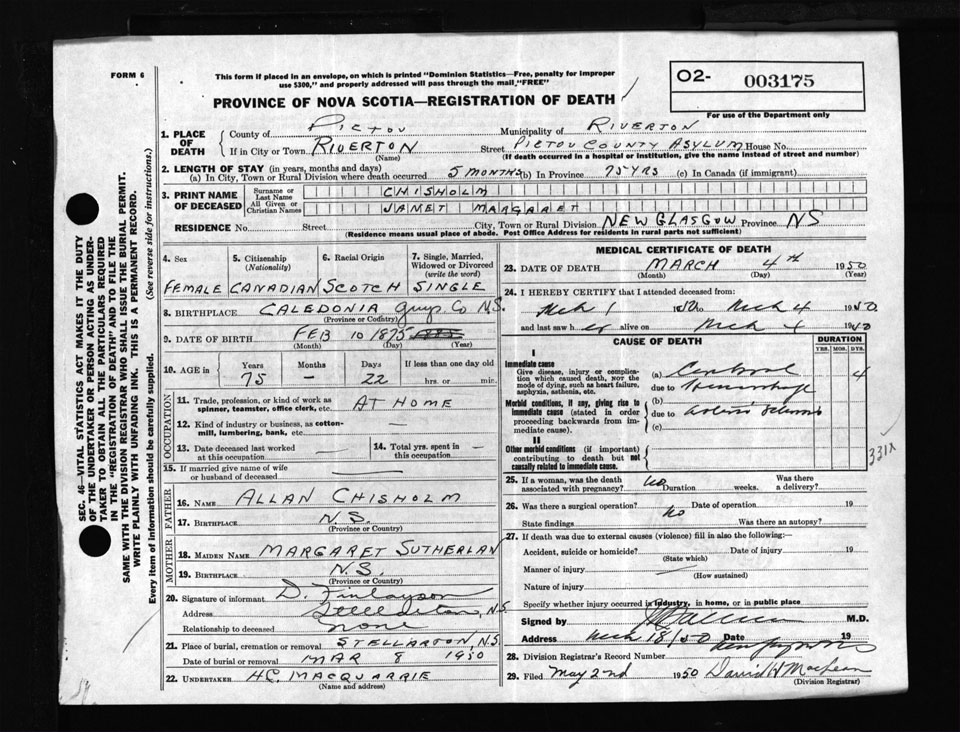 FORM 6
This form if placed in an envelope, on which is printed "Dominion Statistics—Free, penalty for improper
use $300," and properly addressed will pass through the mail, "FREE"
O2- 003175
For use of the Department only
PROVINCE OF NOVA SCOTIA—REGISTRATION OF DEATH
1. PLACE OF DEATH
County of PICTOU Municipality of RIVERTON
If in City or Town RIVERTON Street PICTOU COUNTY ASYLUM House No.
(Name) (If death occurred in a hospital or institution, give the name instead of street and number)
2. LENGTH OF STAY (in years, months and days)
(a) In City, Town or Rural Division where death occurred 5 MONTHS (b) In Province 75 YRS (c) In Canada (if immigrant)
3. PRINT NAME OF DECEASED
Surname or Last Name CHISHOLM
All Given or Christian Names JANET MARGARET
RESIDENCE No. Street City, Town or Rural Division NEW GLASGOW Province NS
(Residence means usual place of abode. Post Office Address for residents in rural parts not sufficient)
4. Sex 5. Citizenship (Nationality) 6. Racial Origin 7. Single, Married, Widowed or Divorced (write the word)
FEMALE CANADIAN SCOTCH SINGLE
8. BIRTHPLACE CALEDONIA Guys. Co N.S.
(Province or Country)
9. DATE OF BIRTH FEB 10 1875
(Month) (Day) (Year)
10. AGE in Years Months Days If less than one day old
75 — 22 hrs. or min.
OCCUPATION
11. Trade, profession, or kind of work as spinner, teamster, office clerk, etc. AT HOME
12. Kind of industry or business, as cotton-mill, lumbering, bank, etc. —
13. Date deceased last worked at this occupation —
14. Total yrs. spent in this occupation —
15. If married give name of wife or husband of deceased —
FATHER
16. NAME ALLAN CHISHOLM
17. BIRTHPLACE N.S.
(Province or Country)
MOTHER
18. MAIDEN NAME MARGARET SUTHERLAN
19. BIRTHPLACE N.S.
(Province or Country)
20. Signature of informant D. Finlayson
Address Stellarton, N.S.
Relationship to deceased none
21. Place of burial, cremation or removal STELLARTON, N.S.
Date of burial or removal MAR 8 1950
22. UNDERTAKER H.C. MACQUARRIE
(Name and address)
MEDICAL CERTIFICATE OF DEATH
23. DATE OF DEATH MARCH 4th 1950
(Month) (Day) (Year)
24. I HEREBY CERTIFY that I attended deceased from:
Mch 1 1950 to Mch 4 1950
and last saw her alive on Mch 4 1950
CAUSE OF DEATH DURATION
YRS. MOS. DYS.
I
Immediate cause
Give disease, injury or complication which caused death, NOT the mode of dying, such as heart failure, asphyxia, asthenia, etc.
(a) Cerebral 4
due to Hemorrhage
Morbid conditions, if any, giving rise to immediate cause (stated in order proceeding backwards from immediate cause).
(b)
due to
(c)
II
Other morbid conditions (if important) contributing to death but not causally related to immediate cause.
331X
25. If a woman, was the death associated with pregnancy? no Duration weeks. Was there a delivery?
26. Was there a surgical operation? no Date of operation 19
State findings Was there an autopsy?
27. If death was due to external causes (violence) fill in also the following:—
Accident, suicide or homicide? Date of injury 19
(State which)
Manner of injury —
(How sustained)
Nature of injury
Specify whether injury occurred in industry, in home, or in public place
Signed by M.D.
Address Mch 18/50 Date 19
28. Division Registrar's Record Number
29. Filed May 2nd 1950 David H MacLean
(Division Registrar)
SEC. 46 VITAL STATISTICS ACT MAKES IT THE DUTY
OF THE UNDERTAKER OR PERSON ACTING AS UNDER-
TAKER TO OBTAIN ALL THE PARTICULARS REQUIRED
IN THE "REGISTRATION OF DEATH" AND TO FILE THE
SAME WITH THE DIVISION REGISTRAR WHO SHALL ISSUE THE BURIAL PERMIT.
WRITE PLAINLY WITH UNFADING INK. THIS IS A PERMANENT RECORD.
Every item of information should be carefully supplied. (See reverse side for instructions.)